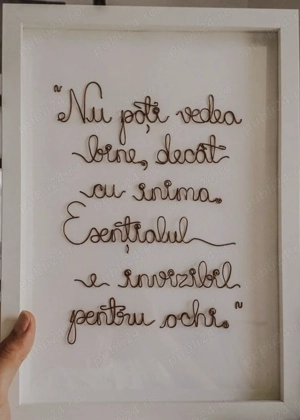 "Nu poți vedea
bine, decât
cu inima.
Esențialul
e invizibil
pentru ochi."